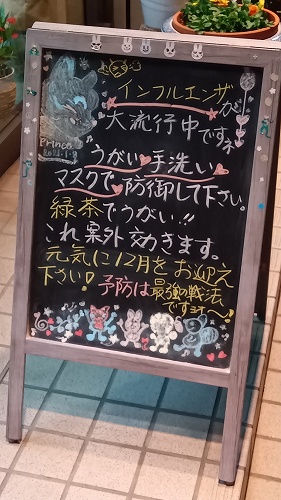 インフルエンザが
大流行中ですネ
うがい手洗い
マスクで防御して下さい。
緑茶でうがい!!
これ案外効きます。
元気に12月をお迎え
下さい!予防は最強の戦法
ですョ〜!
Prince